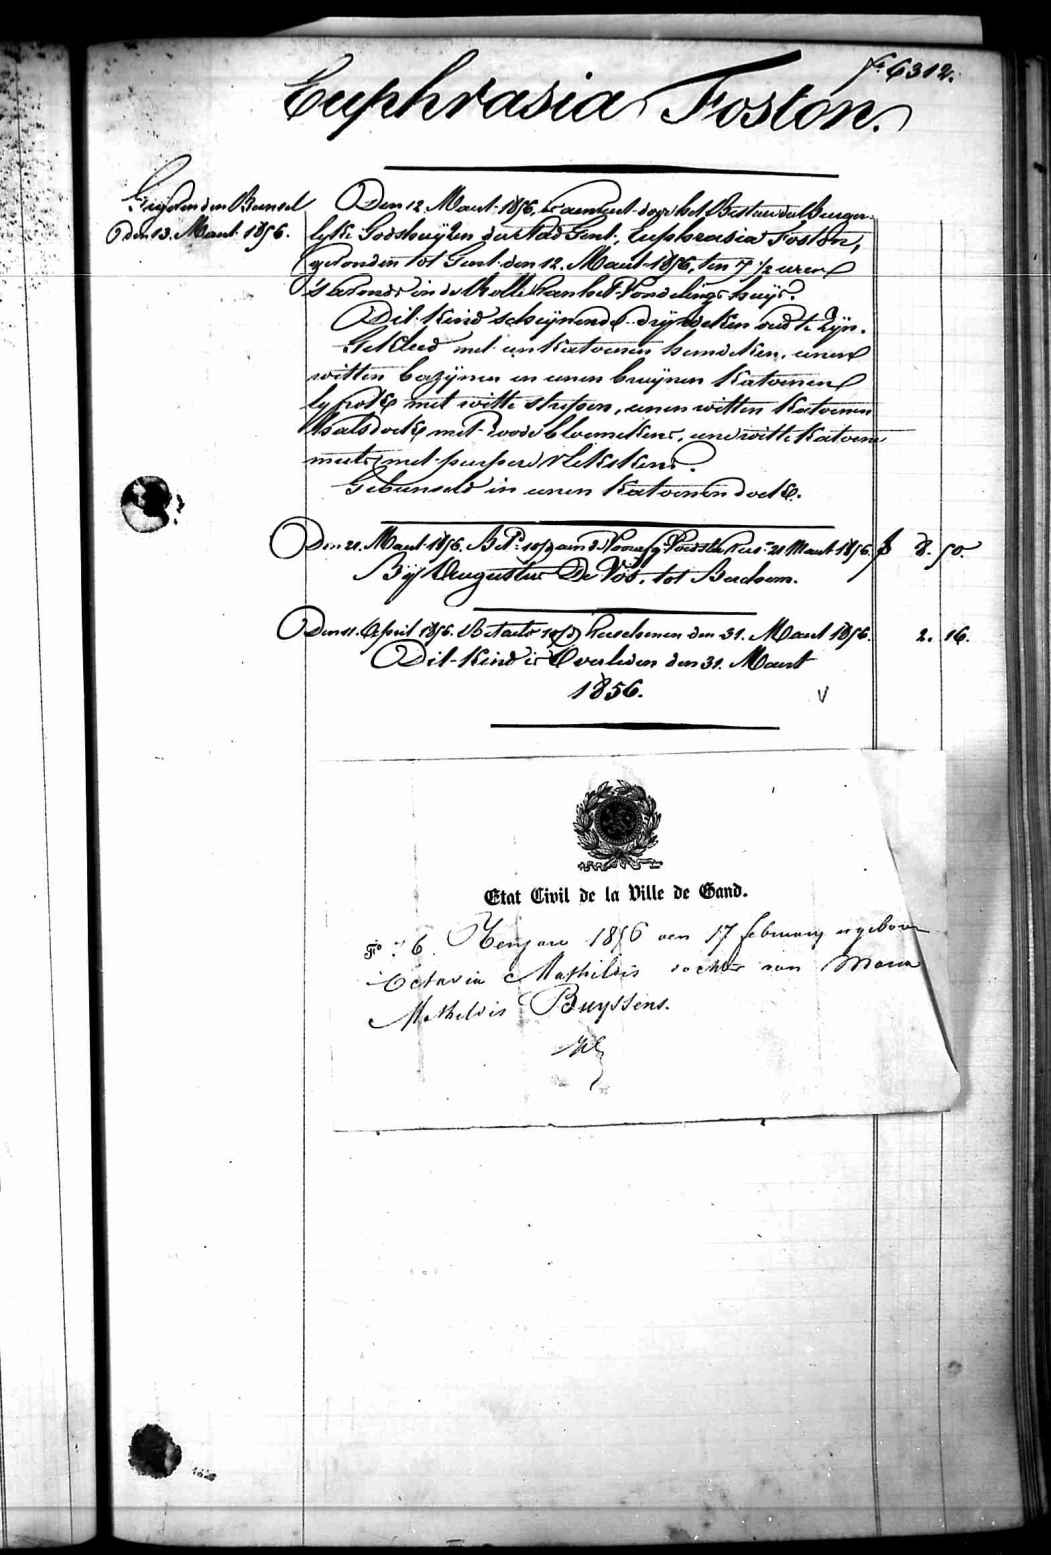 fº 6312.
Euphrasia Foston.
den 13. Maart 1856.
Den 12 Maart 1856, is aenveert door het Bestuer der Burger-
lyke Godshuyzen der Stad Gent, Euphrasia Foston,
gevonden tot Gent den 12. Maart 1856, ten 7 1/2 uren
's avonds in de Rolle van het Vondelings huys.
Dit Kind scheynende dry weken oud te zyn.
Gekleed met een Katoenen hemdeken, eenen
witten bazynen en eenen bruynen Katoenen
lyfrock met witte strepen, eenen witten Katoenen
halsdoek met roode bloemekens, eene witte Katoene
muts met purpere vlekskens.
Gebunseld in eenen Katoenen doek.
Den 21. Maart 1856. 21 Maart 1856. f 8. 50.
By Augustus De Vos, tot Berchem.
Den 11. April 1856. Betaeld verschenen den 31. Maart 1856. 2. 16.
Dit Kind is Overleden den 31. Maart
1856.
Etat Civil de la Ville de Gand.
Fº 6. Ten jare 1856 den 17 february is geboren
Octavia Mathildis dochter van Maria
Mathildis Buyssens.